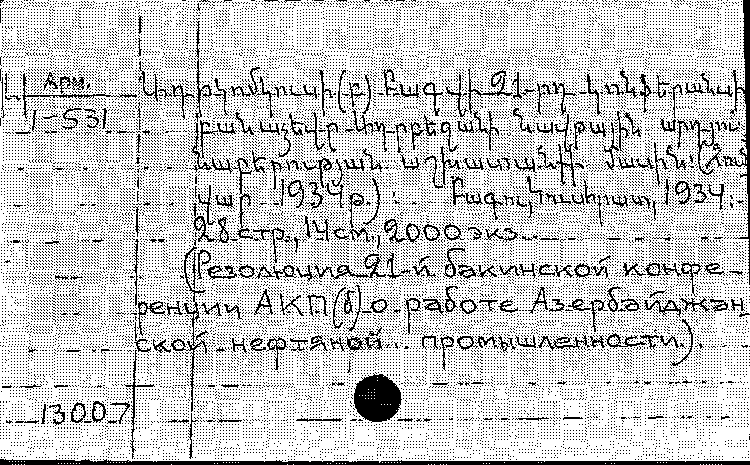 Арм.
1-531
Ադրկոմկուսի(բ) Բագվի 21-րդ կոնֆերանսի
բանաձևը Ադրբեջանի նավթային արդյու-
նաբերության աշխատանքի մասին: (Հուն-
վար 1934թ.) Բագու, Կուսհրատ, 1934.
28 стр., 14 см., 2000 экз.
(Резолюция 21-й бакинской конфе-
ренции АКП(б) о работе Азербайджан
ской нефтяной промышленности).
13007